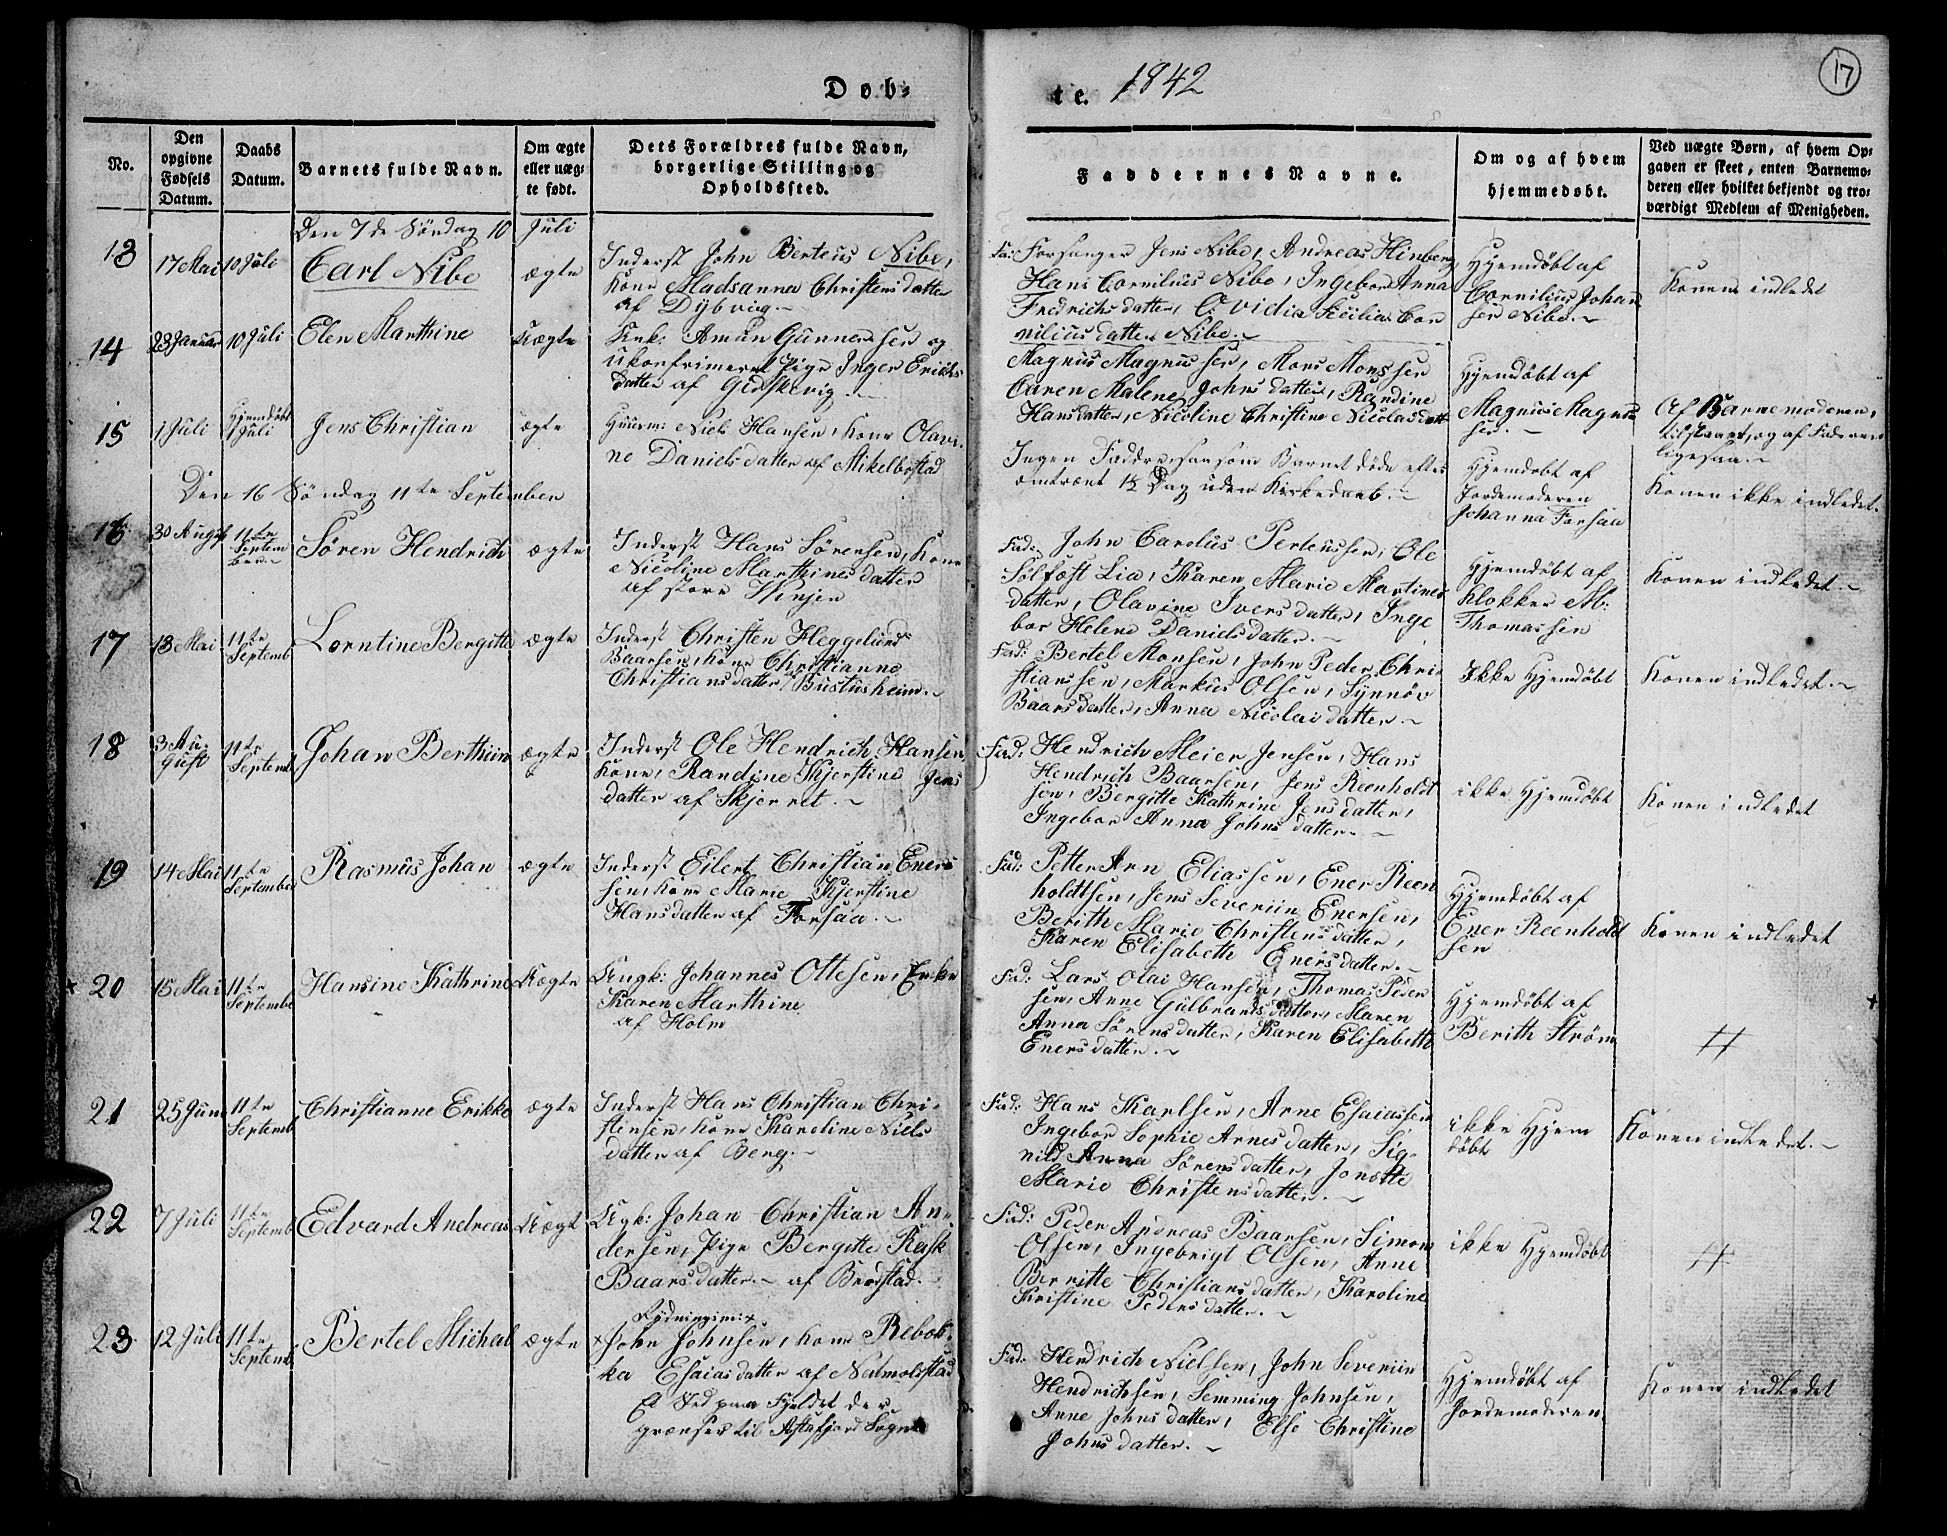 Døb-
te. 1842
17
No.
Den opgivne Fødsels Datum.
Daabs Datum.
Barnets fulde Navn.
Om ægte eller uæg-te født.
Dets Forældres fulde Navn, borgerlige Stilling og Opholdssted.
Faddernes Navne.
Om og af hvem hjemmedøbt.
Ved uægte Børn, af hvem Op-
gaven er skeet, enten Barnemo-
deren eller hvilket bekjendt og tro-
værdigt Medlem af Menigheden.
Den 7de Søndag 10 Juli
13
17 Mai
10 Juli
Carl Nibe
ægte
Inderst John Berteus Nibe,
Kone Madsanna Christensdatter
af Dybvig.
Fa: Forsanger Jens Nibe, Andreas Hinberg
Hans Cornilius Nibe, Ingebor Anna
Fredrichsdatter, Ovidia Sicilia Cor
niliusdatter Nibe.
Hjemdøbt af
Cornilius Johan
sen Nibe.
Konen indledet
14
23 Januar
10 Juli
Elen Marthine
Uægte
Enk: Amun Gunnersen og
ukonfrimeret Pige Inger Erichs
datter af Gidskevig.
Magnus Magnussen, Mons Monssen
Caren Malene Johnsdatter, Randine
Hansdatter, Nicoline Christine Nicolasdatt
Hjemdøbt af
Magnus Magnus
sen.
Af Barnemoderen,
tilstaaet, og af Faderen
ligesaa.
15
1 Juli
Hjemdøbt
1 Juli
Jens Christian
ægte
Huusm: Niels Hansen, Kone Olavi-
ne Danielsdatter af Mikelbostad
Ingen Faddre, saasom Barnet døde efter
omtrent 1½ Dag uden Kirkedaab.
Hjemdøbt af
Jordemoderen
Johanna Forsaa
Konen ikke indledet.
Den 16 Søndag 11te September
16
30 August
11te
Septem
ber
Søren Hendrich
ægte
Inderst Hans Sørensen, Kone
Nicoline Marthinesdatter
af store Hinjen
Fad: John Carolus Perteussen, Ole
Solfost Lia, Karen Marie Martines
datter, Olavine Iversdatter, Inge
bor Helene Danielsdatter.
Hjemdøbt af
Klokker M:
Thomassen
Konen indledet.
17
13 Mai
11te
Septemb
Lorntine Bergitte
ægte
Inderst Christen Heggelund
Baarsen, Kone Christianne
Christiansdatter, Bustusheim.
Fad: Bertel Monsen, John Peder Chri-
stianssen, Markus Olsen, Synnøv
Baarsdatter, Anna Nicolaidatter.
Ikke Hjemdøbt
Konen indledet.
18
3 Au-
gust
11te
Septemb
Johan Berthium
ægte
Inderst Ole Hendrich Hansen
Kone, Randine Kjerstine Jens
datter af Skjerret.
Fad: Hendrich Meier Jensen, Hans
Hendrich Baarsen, Jens Reenholdt
sen, Bergitte Kathrine Jensdatter,
Ingebor Anna Johnsdatter.
ikke Hjemdøbt
Konen indledet
19
14 Mai
11te
September
Rasmus Johan
ægte
Inderst Eilert Christian Eners
sen, Kone Marie Kjerstine
Hansdatter af Forsaa.
Fad: Petter Arn Eliassen, Ener Reen
holdtsen, Jens Severiin Enersen,
Berith Marie Christensdatter,
Karen Elisabeth Enersdatter.
Hjemdøbt af
Ener Reenholdt
sen
Konen indledet
20
15 Mai
11te
Septembe
Hansine Kathrine
Uægte
Ungk: Johannes Ottesen, Enke
Karen Marthine
af Holm
Fad: Lars Olai Hansen, Thomas Peder
sen, Anne Gulbrandsdatter, Maren
Anna Sørensdatter, Karen Elisabeth
Enersdatter.
Hjemdøbt af
Berith Strøm
21
25 Juni
11te
Septemb
Christianne Erikke
ægte
Inderst Hans Christian Chri-
stensen, Kone Karoline Niels
datter af Berg.
Fad: Hans Karlsen, Arne Esaiassen
Ingebor Sophie Arnesdatter, Sig-
nild Anna Sørensdatter, Jonette
Marie Christensdatter.
ikke Hjem
døbt
Konen indledet.
22
7 Juli
11te
Septemb
Edvard Andreas
Uægt
Ugk: Johan Christian An-
dersen, Pige Bergitte Rask
Baarsdatter. af Brødstad.
Fad: Peder Andreas Baarsen, Simon
Olsen, Ingebrigt Olsen, Anne
Berritte Christiansdatter, Karoline
Kristine Pedersdatter.
ikke Hjemdøbt
23
12 Juli
11te
Septemb
Bertel Micheal
ægte
Rydningsm: x
x John Johnsen, Kone Rebek-
ka Esaiasdatter af Nalmolstad
Et Sted paa Fjeldet der
grænser til Astafjord Sogne
Fad: Hendrich Nielsen, John Severiin
Hendrichsen, Semming Johnsen,
Anne Johnsdatter, Else Christine
Johnsdatter.
Hjemdøbt af
Jordemoderen
Konen indledet